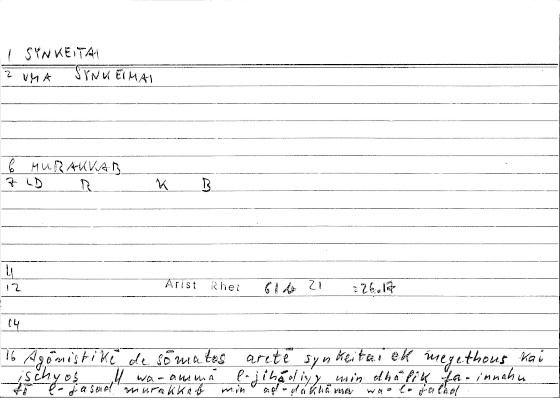 1 SYNKEITAI
2 VMA SYNKEIMAI
6 MURAKKAB
7 LD R K B
11
12 Arist Rhet 61b 21 =26.17
14
16 Agōnistikē de sōmatos aretē synkeitai ek megethous kai
ischyos // wa-ammā l-jihādiyy min dhālik fa-innahu
fī l-jasad murakkab min aḍ-ḍakhāma wa-l-jalad